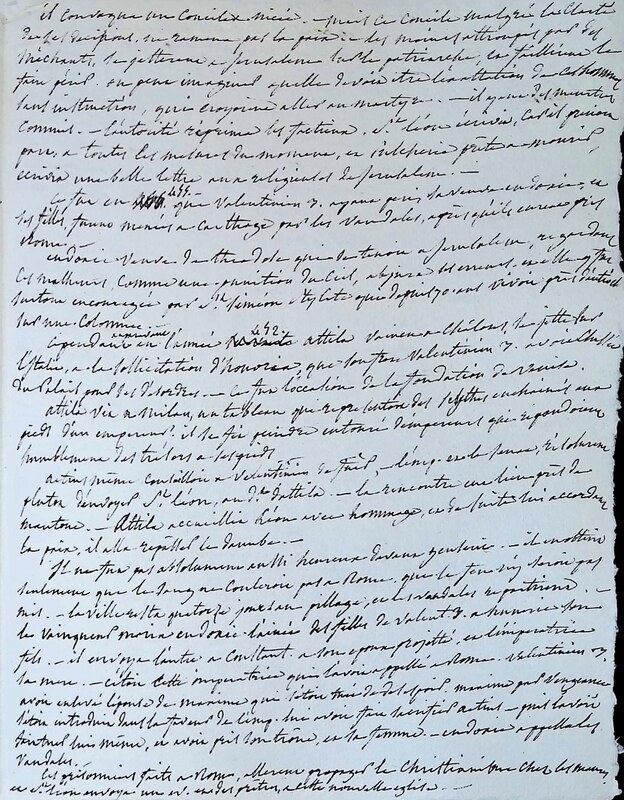 il convoqua un Concile à nicée. - mais ce Concile malgré la Clarté
de ses décisions, ne ramena pas la paix - les moines attroupés par des
méchants, se jetterent à Jerusalem sur le patriarche, et faillirent le
faire périr. on peut imaginer quelle devoit être l'exaltation de ces hommes
sans instruction, qui croyoient aller au martyre. - il y eut des meurtres
commis. - l'autorité réprima les factieux, St. léon écrivit, car il prenoit
part, à toutes les mesures du moment, et
écrivit une belle lettre aux religieux de Jerusalem. -
Ce fut en 455. que Valentinien 3. ayant péri, sa veuve eudoxie, et
ses filles, furent menées à Carthage par les Vandales, après qu'ils eurent pris
Rome.
eudocie veuve de theodose qui se tenoit à Jerusalem, regardant
ces malheurs, comme une punition du Ciel, abjura ses erreurs, et elle y fut
surtout encouragée par St. Siméon Stylite qui depuis 30 ans vivoit près d'antioche
sur une Colonne.
Cependant en l'année 452. attila vaincu à Châlons, se jetta sur
l'Italie, à la sollicitation d'honoria, que son frère Valentinien 3. avoit chassée
du Palais pour ses désordres. - Ce fut l'occasion de la fondation de venise.
attila vit à milan, un tableau qui representoit des scythes enchainés aux
pieds d'un empereur. il se fit peindre entouré d'empereurs qui repandoient
humblement des trésors à ses pieds.
aetius même conseilloit à Valentinien de fuir, - l'emp. et le senat, résolurent
plutôt d'envoyer St. léon, au d.t d'attila. - la rencontre eut lieu près de
mantoue. - Attila accueillit Léon avec hommage, et de suite lui accordant
la paix, il alla repasser le danube. -
Il ne fut pas absolument aussi heureux devant genseric. - il en obtint
seulement que le sang ne couleroit pas à Rome. que le feu n'y seroit pas
mis. - la ville resta quatorze jours au pillage, et les vandales repartirent. -
le vainqueur maria eudocie l'ainée des filles de Valent. 3. à huneric son
fils. - il envoya l'autre à Constant. à son epoux projetté, et l'impératrice
sa mere. - C'étoit cette imperatrice qui l'avoit appellé à Rome. Valentinien 3.
avoit enlevé l'épouse de maxime qui s'étoit tuée de desespoir. maxime par vengeance
s'étoit introduit dans la faveur de l'emp. lui avoit fait sacrifier aetius - puis l'avoit
fait tuer lui même, et avoit pris son trône, et sa femme. - eudoxie appella les
Vandales.
les prisonniers faits à Rome, allerent propager le Christianisme chez les maures,
et St. léon envoya un ev. et des prêtres, à cette nouvelle eglise. -